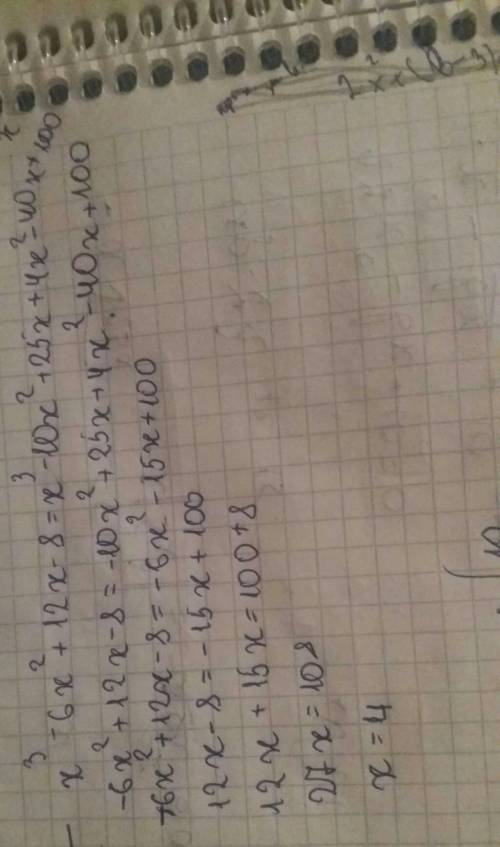 x³ - 6x² + 12x - 8 = x³ - 10x² + 25x + 4x² - 40x + 100
-6x² + 12x - 8 = -10x² + 25x + 4x² - 40x + 100
-6x² + 12x - 8 = -6x² - 15x + 100
12x - 8 = -15x + 100
12x + 15x = 100 + 8
27x = 108
x = 4